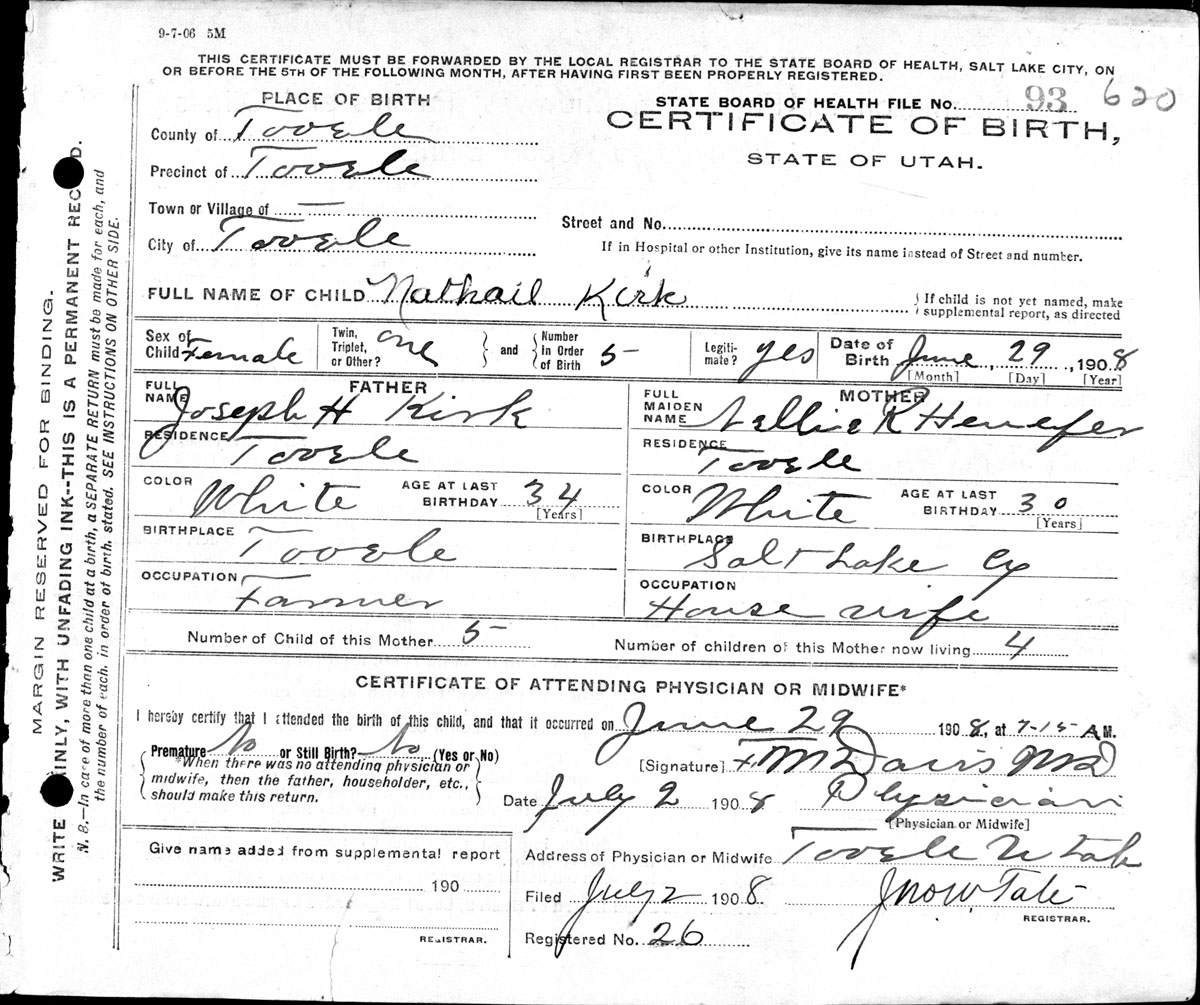 9-7-06 5M
THIS CERTIFICATE MUST BE FORWARDED BY THE LOCAL REGISTRAR TO THE STATE BOARD OF HEALTH, SALT LAKE CITY, ON
OR BEFORE THE 5TH OF THE FOLLOWING MONTH, AFTER HAVING FIRST BEEN PROPERLY REGISTERED.
PLACE OF BIRTH
STATE BOARD OF HEALTH FILE No. 93 620
CERTIFICATE OF BIRTH,
STATE OF UTAH.
County of Tooele
Precinct of Tooele
Town or Village of —
Street and No.
City of Tooele
If in Hospital or other Institution, give its name instead of Street and number.
FULL NAME OF CHILD Nathail Kirk
If child is not yet named, make
supplemental report, as directed
Sex of Child Female
Twin, Triplet, or Other? one
and Number in Order of Birth 5
Legiti-mate? yes
Date of Birth June 29, 1908
[Month] [Day] [Year]
FATHER
FULL NAME Joseph H Kirk
RESIDENCE Tooele
COLOR White AGE AT LAST BIRTHDAY 34 [Years]
BIRTHPLACE Tooele
OCCUPATION Farmer
MOTHER
FULL MAIDEN NAME Nellie R Henefer
RESIDENCE Tooele
COLOR White AGE AT LAST BIRTHDAY 30 [Years]
BIRTHPLACE Salt Lake Cy
OCCUPATION House wife
Number of Child of this Mother 5 Number of children of this Mother now living 4
CERTIFICATE OF ATTENDING PHYSICIAN OR MIDWIFE*
I hereby certify that I attended the birth of this child, and that it occurred on June 29 1908, at 7-15 A M.
Premature No or Still Birth? No (Yes or No)
*When there was no attending physician or
midwife, then the father, householder, etc.,
should make this return.
[Signature] F M Davis MD
Date July 2 1908 Physician
[Physician or Midwife]
Give name added from supplemental report
190
REGISTRAR.
Address of Physician or Midwife Tooele Utah
Filed July 2 1908. Jno W Tate
REGISTRAR.
Registered No. 26
MARGIN RESERVED FOR BINDING.
WRITE INLY, WITH UNFADING INK--THIS IS A PERMANENT REC D.
N. B.—In case of more than one child at a birth, a SEPARATE RETURN must be made for each, and
the number of each, in order of birth, stated. SEE INSTRUCTIONS ON OTHER SIDE.